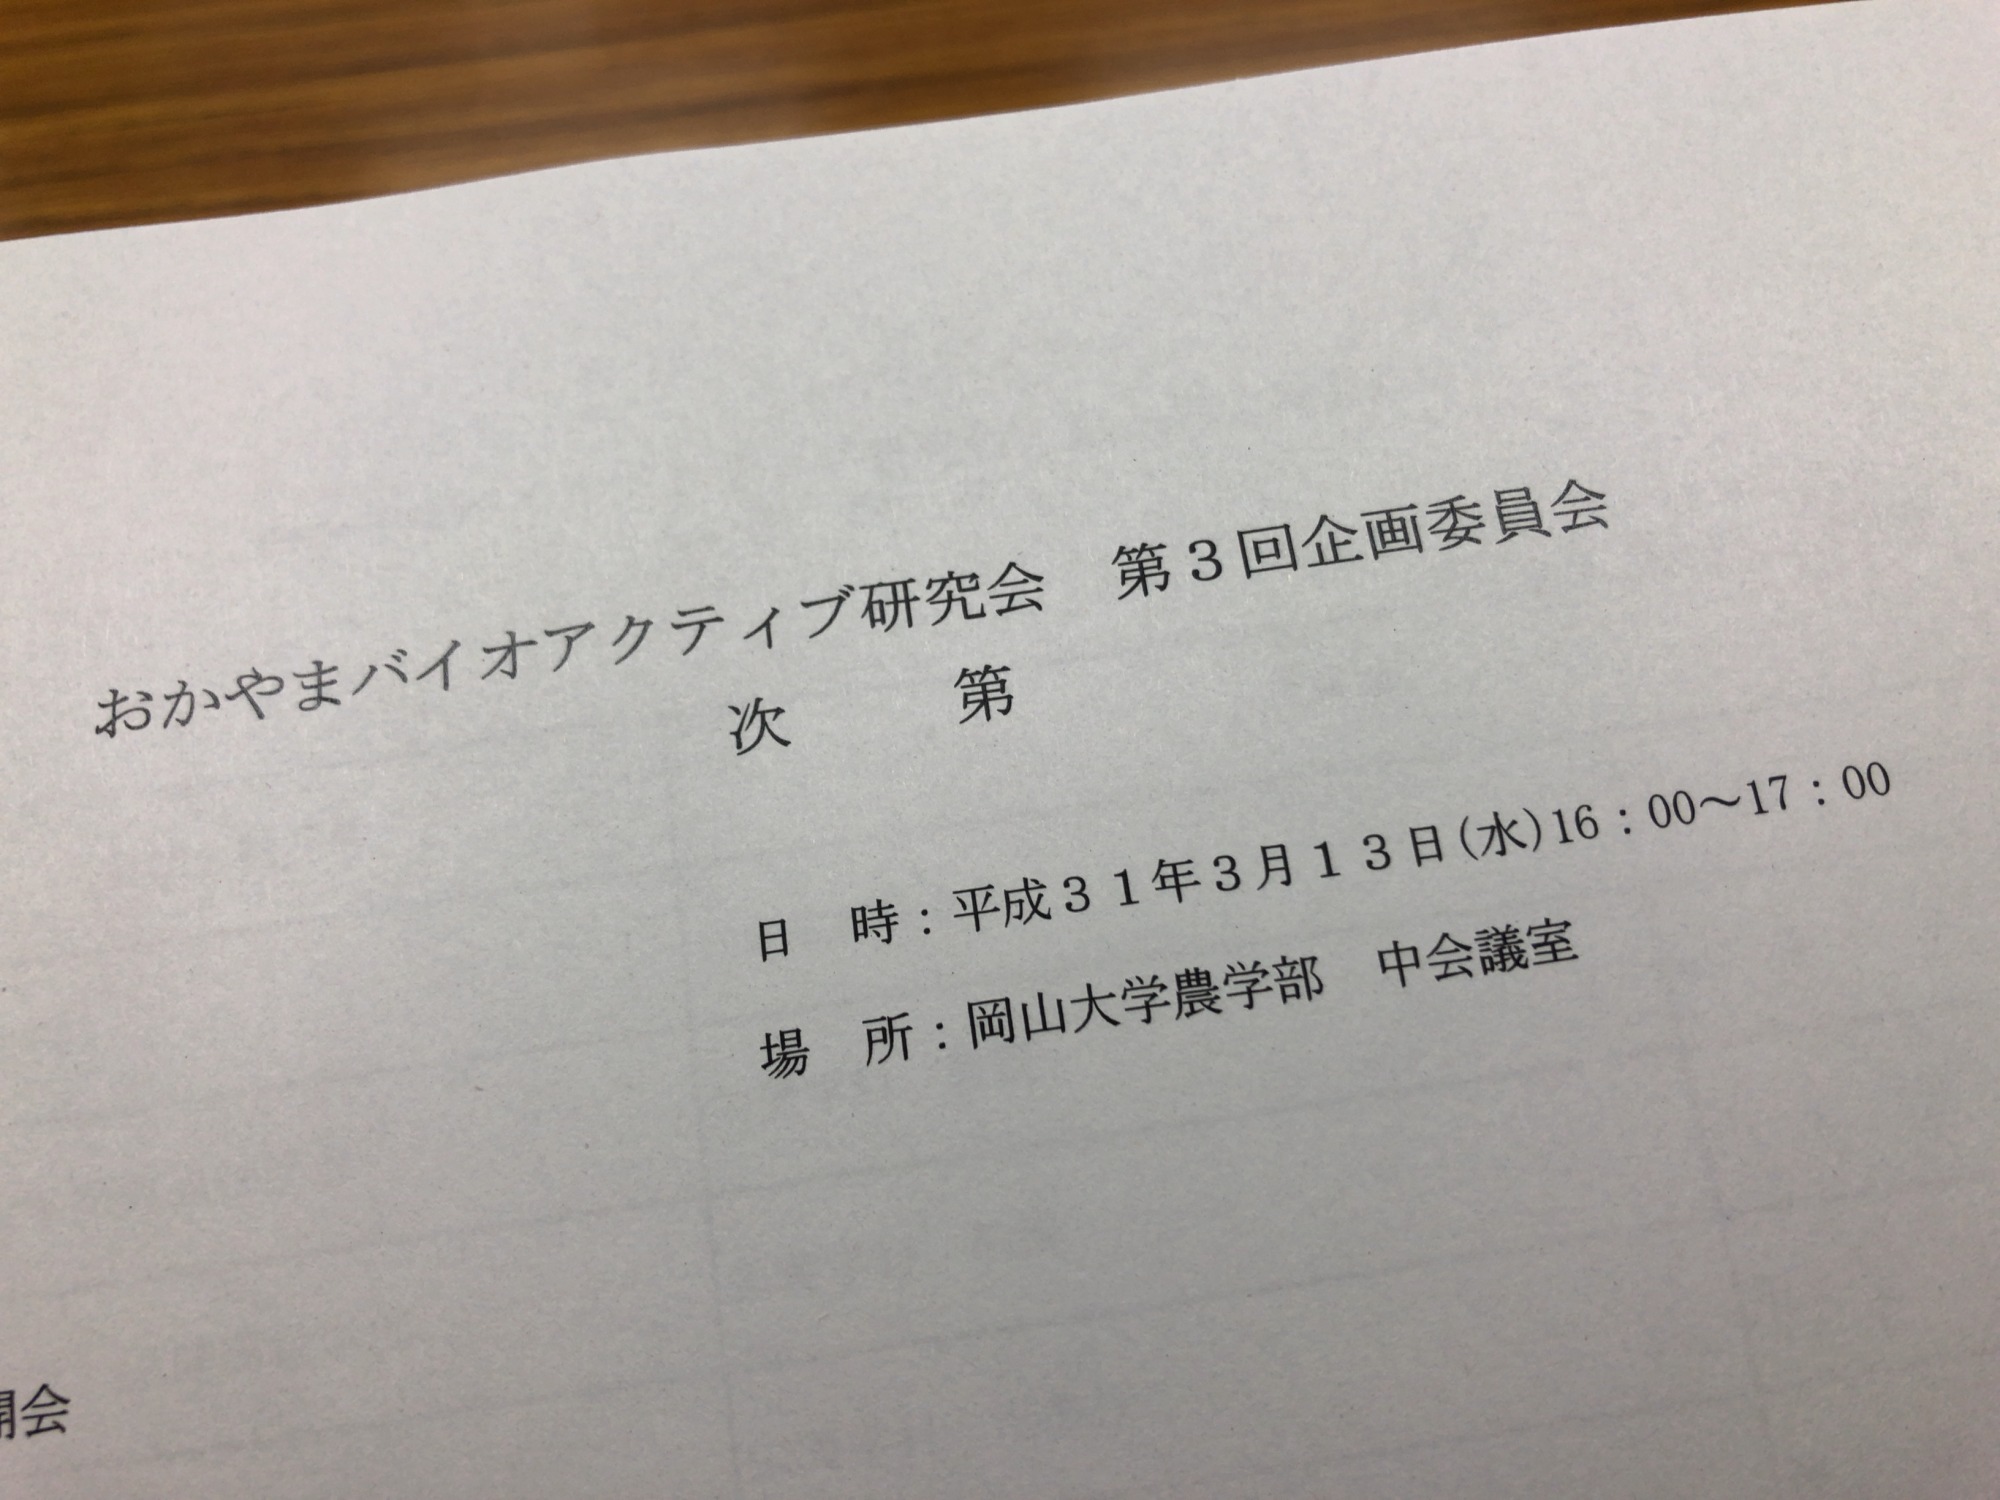 おかやまバイオアクティブ研究会　第３回企画委員会
次　　　第
日　時：平成３１年３月１３日(水)16：00～17：00
場　所：岡山大学農学部　中会議室
開会